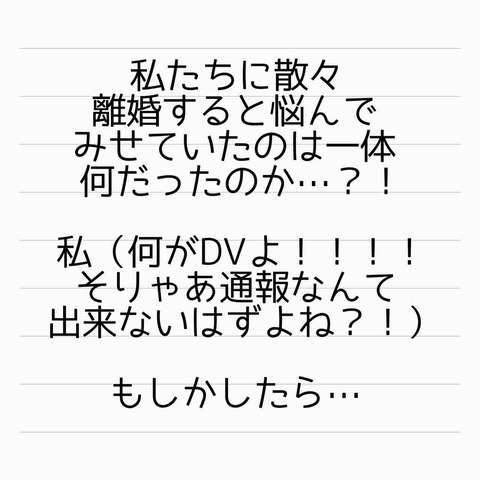 私たちに散々
離婚すると悩んで
みせていたのは一体
何だったのか…？！
私（何がDVよ！！！！
そりゃあ通報なんて
出来ないはずよね？！）
もしかしたら…